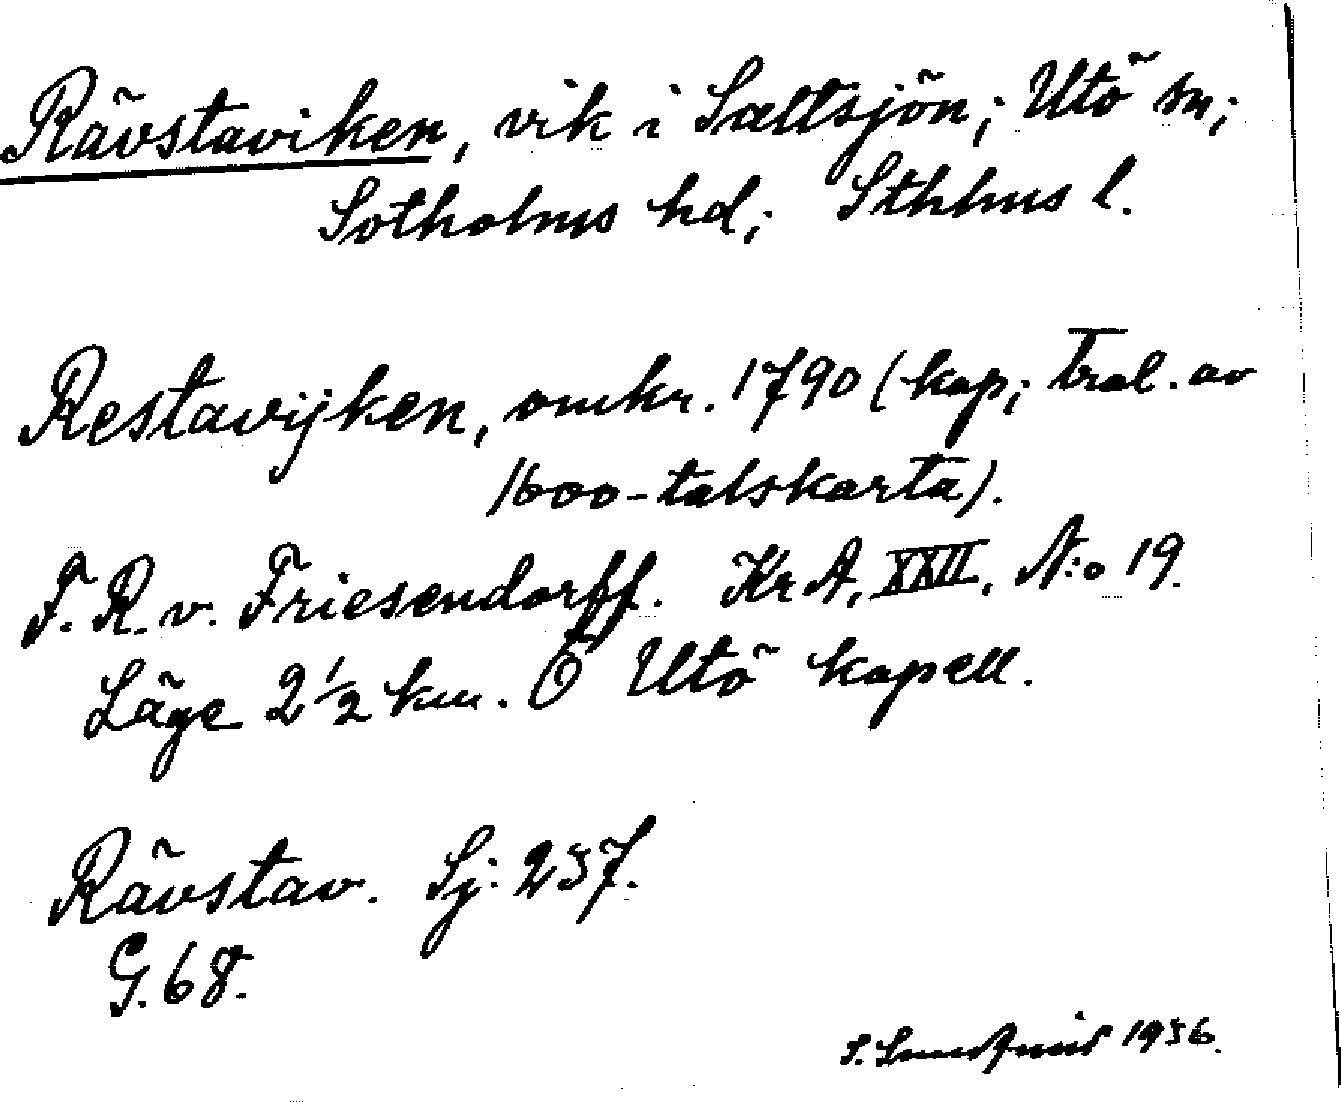 Rävstaviken, vik i Saltsjön; Utö sn;
Sotholms hd; Sthlms l.
Restavijken, omkr. 1790 (kop; trol. av
1600-talskarta).
F. R. v. Friesendorff. Kr A, XXII, N:o 19.
Läge 2 1/2 km. Ö Utö kapell.
Rävstav. Sj: 257.
G. 68.
S. Lundqvist 1956.